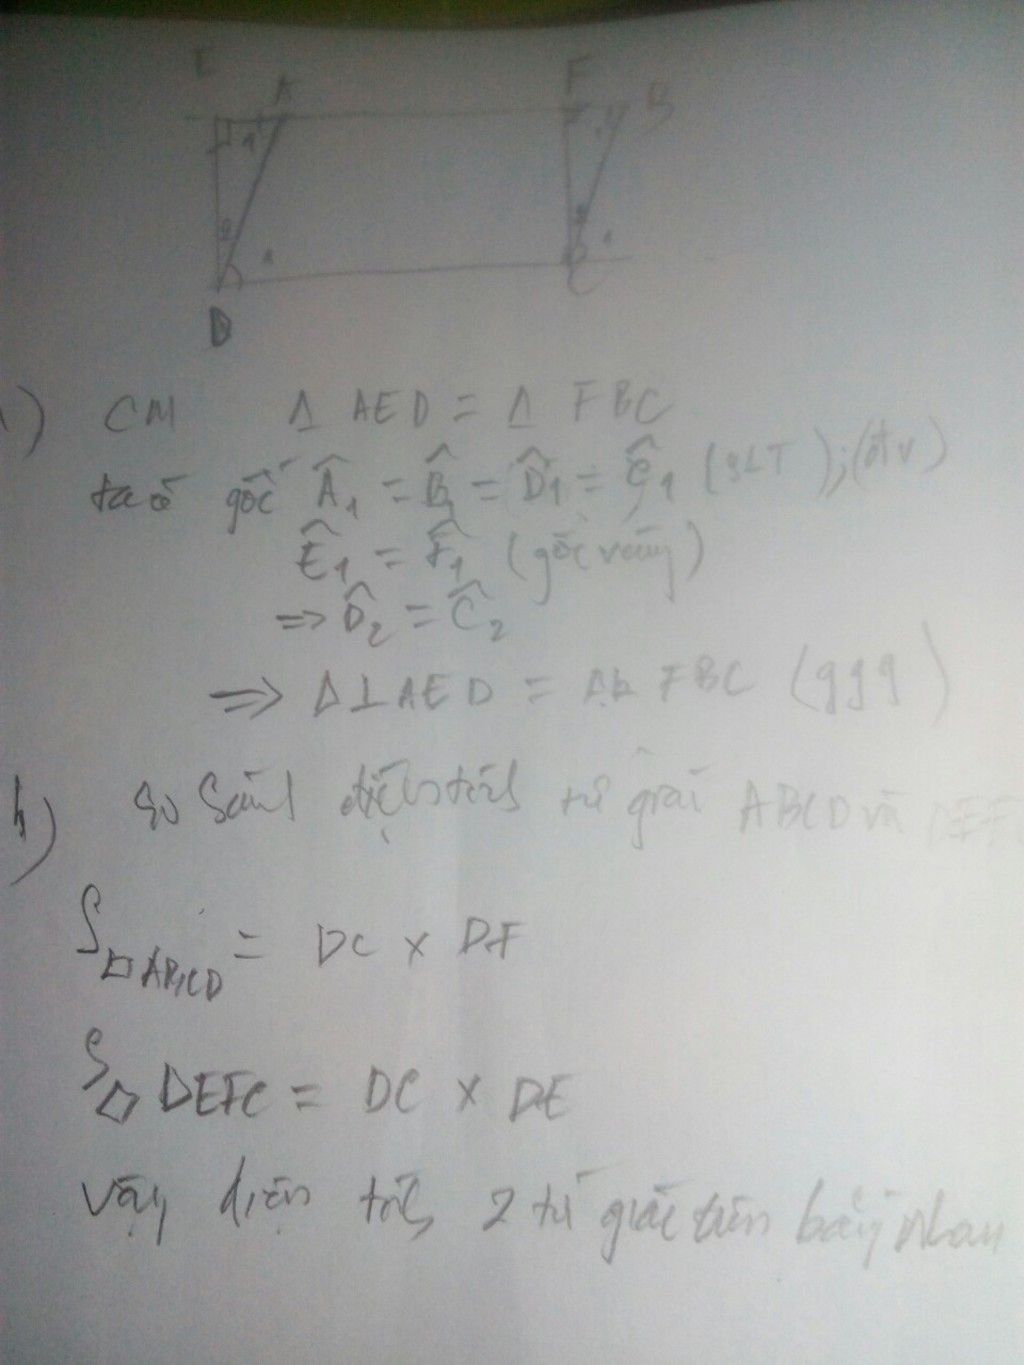 E A F B
1 1
2 1 2 1
D C
) CM Δ AED = Δ FBC
ta có góc Â1 = B̂1 = D̂1 = Ĉ1 (SLT);(đ v)
Ê1 = F̂1 (góc vuông)
=> D̂2 = Ĉ2
=> Δ⊥AED = Δ⊥ FBC (ggg)
b) so sánh diện tích tứ giác ABCD và DEF
S▱ABCD = DC x DF
S▱ DEFC = DC x DE
vậy diện tích 2 tứ giác trên bằng nhau